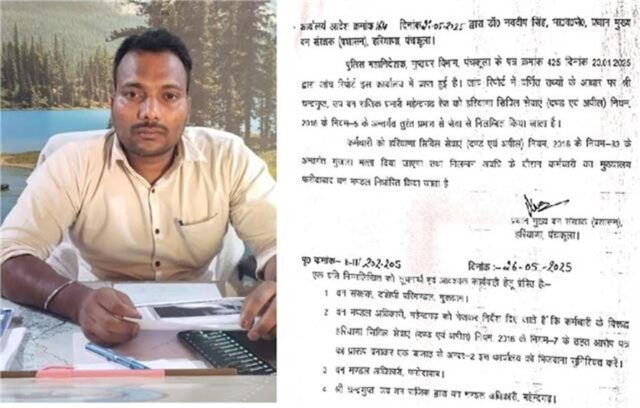 कार्यालय आदेश क्रमांक दिनांक 26-05-2025 द्वारा डॉ० नवदीप सिंह, भा०व०से०, प्रधान मुख्य
वन संरक्षक (प्रशासन), हरियाणा, पंचकूला।
पुलिस महानिदेशक, गुप्तचर विभाग, पंचकूला के पत्र क्रमांक 425 दिनांक 23.01.2025
द्वारा जांच रिपोर्ट इस कार्यालय में प्राप्त हुई है। जांच रिपोर्ट में वर्णित तथ्यों के आधार पर श्री
चन्द्रगुप्त, उप वन राजिक प्रभारी महेन्द्रगढ़ रेंज को हरियाणा सिविल सेवाएं (दण्ड एवं अपील) नियम,
2016 के नियम-5 के अन्तर्गत तुरंत प्रभाव से सेवा से निलम्बित किया जाता है।
कर्मचारी को हरियाणा सिविल सेवाएं (दण्ड एवं अपील) नियम, 2016 के नियम-83 के
अन्तर्गत गुजारा भत्ता दिया जाएगा तथा निलम्बन अवधि के दौरान कर्मचारी का मुख्यालय
फरीदाबाद वन मण्डल निर्धारित किया जाता है
प्रधान मुख्य वन संरक्षक (प्रशासन),
हरियाणा, पंचकूला।
पृ० क्रमांक- 202-205 दिनांक :-26-05-2025
एक प्रति निम्नलिखित को सूचनार्थ एवं आवश्यक कार्यवाही हेतु प्रेषित है:-
1 वन संरक्षक, दक्षिणी परिमण्डल, गुरूग्राम।
2 वन मण्डल अधिकारी, महेन्द्रगढ़ को भेजकर निर्देश दिए जाते हैं कि कर्मचारी के विरूद्ध
हरियाणा सिविल सेवाएं (दण्ड एवं अपील) नियम, 2016 के नियम-7 के तहत आरोप पत्र
का प्रारूप बनाकर एक सप्ताह के अन्दर-2 इस कार्यालय को भिजवाना सुनिश्चित करें।
3 वन मण्डल अधिकारी, फरीदाबाद।
4 श्री चन्द्रगुप्त उप वन राजिक द्वारा वन मण्डल अधिकारी, महेन्द्रगढ़।